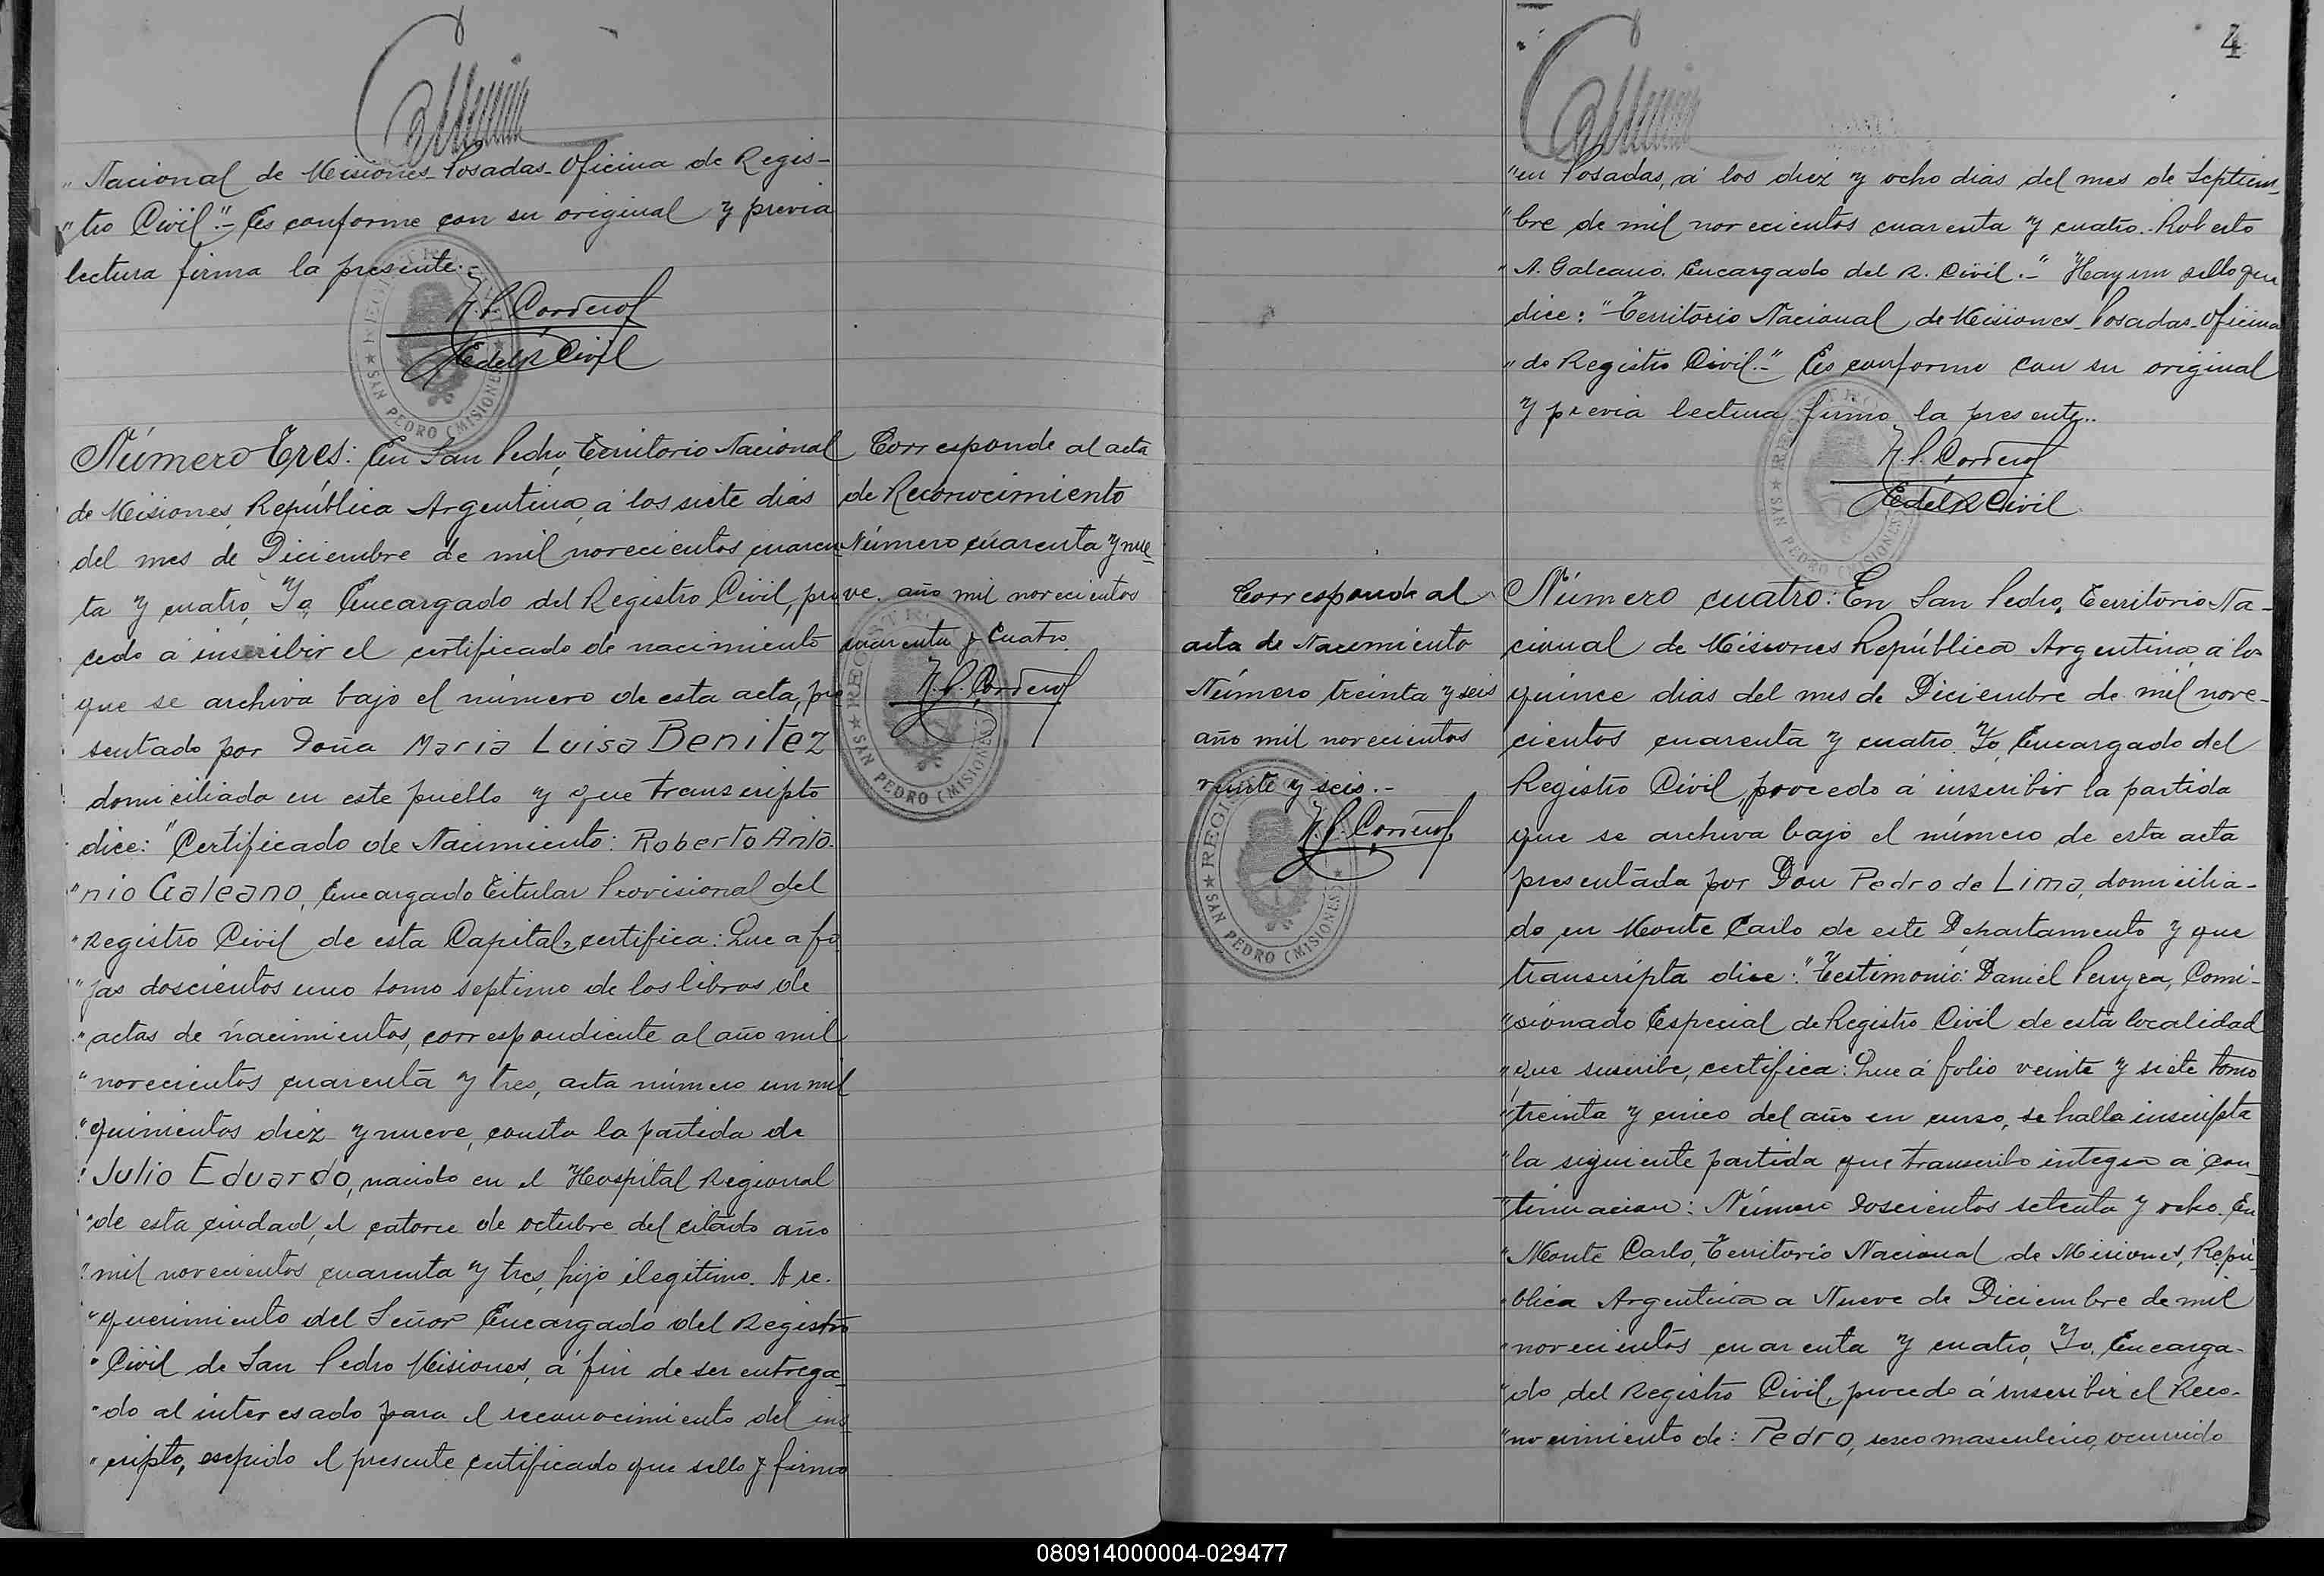 "Nacional de Misiones_Posadas_Oficina de Regis-
"tro Civil".- Es conforme con su original y previa
lectura firma la presente.-
E. del R. Civil
REGISTRO CIVIL
SAN PEDRO (MISIONES)
Número Tres: En San Pedro, Territorio Nacional
de Misiones, República Argentina, á los siete dias
del mes de Diciembre de mil novecientos cuaren
ta y cuatro, Yo, Encargado del Registro Civil, pro
cedo á inscribir el certificado de nacimiento
que se archiva bajo el número de esta acta, pre
sentado por Doña Maria Luisa Benitez
domiciliada en este pueblo y que transcripto
dice: "Certificado de Nacimiento: Roberto Anto-
"nio Galeano, Encargado Titular Provisional del
"Registro Civil de esta Capital, certifica: Que a fo
"jas doscientos uno tomo septimo de los libros de
"actas de nacimientos, correspondiente al año mil
"novecientos cuarenta y tres, acta número un mil
"quinientos diez y nueve, consta la partida de
"Julio Eduardo, nacido en el Hospital Regional
"de esta ciudad, el catorce de octubre del citado año
"mil novecientos cuarenta y tres, hijo ilegitimo. A re-
"querimiento del Señor Encargado del Registro
"Civil de San Pedro Misiones, á fin de ser entrega_
"do al interesado para el reconocimiento del ins_
"cripto, expido el presente certificado que sello y firmo
Corresponde al acta
de Reconocimiento
Número cuarenta y nue_
ve. año mil novecientos
cuarenta y Cuatro.
SAN PEDRO (MISIONES)
4
"en Posadas, á los diez y ocho dias del mes de Septiem_
"bre de mil novecientos cuarenta y cuatro.- Roberto
"A. Galeano, Encargado del R. Civil.-" Hay un sello que
dice: "Territorio Nacional de Misiones_Posadas_Oficina
"de Registro Civil.-" Es conforme con su original
y previa lectura firmo la presente..
E. del R. Civil
SAN PEDRO (MISIONES)
Corresponde al
acta de Nacimiento
Número treinta y seis
año mil novecientos
veinte y seis.-
REGISTRO
SAN PEDRO (MISIONES)
Número cuatro: En San Pedro, Territorio Na_
cional de Misiones República Argentina, á los
quince dias del mes de Diciembre de mil nove_
cientos cuarenta y cuatro. Yo, Encargado del
Registro Civil, procedo á inscribir la partida
que se archiva bajo el número de esta acta
presentada por Don Pedro de Lima, domicilia-
do en Monte Carlo de este Departamento y que
transcripta dice: "Testimonio: Daniel Pereyra, Comi-
"sionado Especial de Registro Civil de esta localidad
"que suscribe, certifica: Que á folio veinte y siete tomo
"treinta y cinco del año en curso, se halla inscripta
"la siguiente partida que transcribo integra á con_
"tinuacion: Número doscientos setenta y ocho. En
"Monte Carlo, Territorio Nacional de Misiones, Repú_
"blica Argentina a Nueve de Diciembre de mil
"novecientos cuarenta y cuatro, Yo, Encarga-
"do del Registro Civil, procedo á inscribir el Reco-
"nocimiento de: Pedro, sexo masculino, ocurrido
080914000004-029477